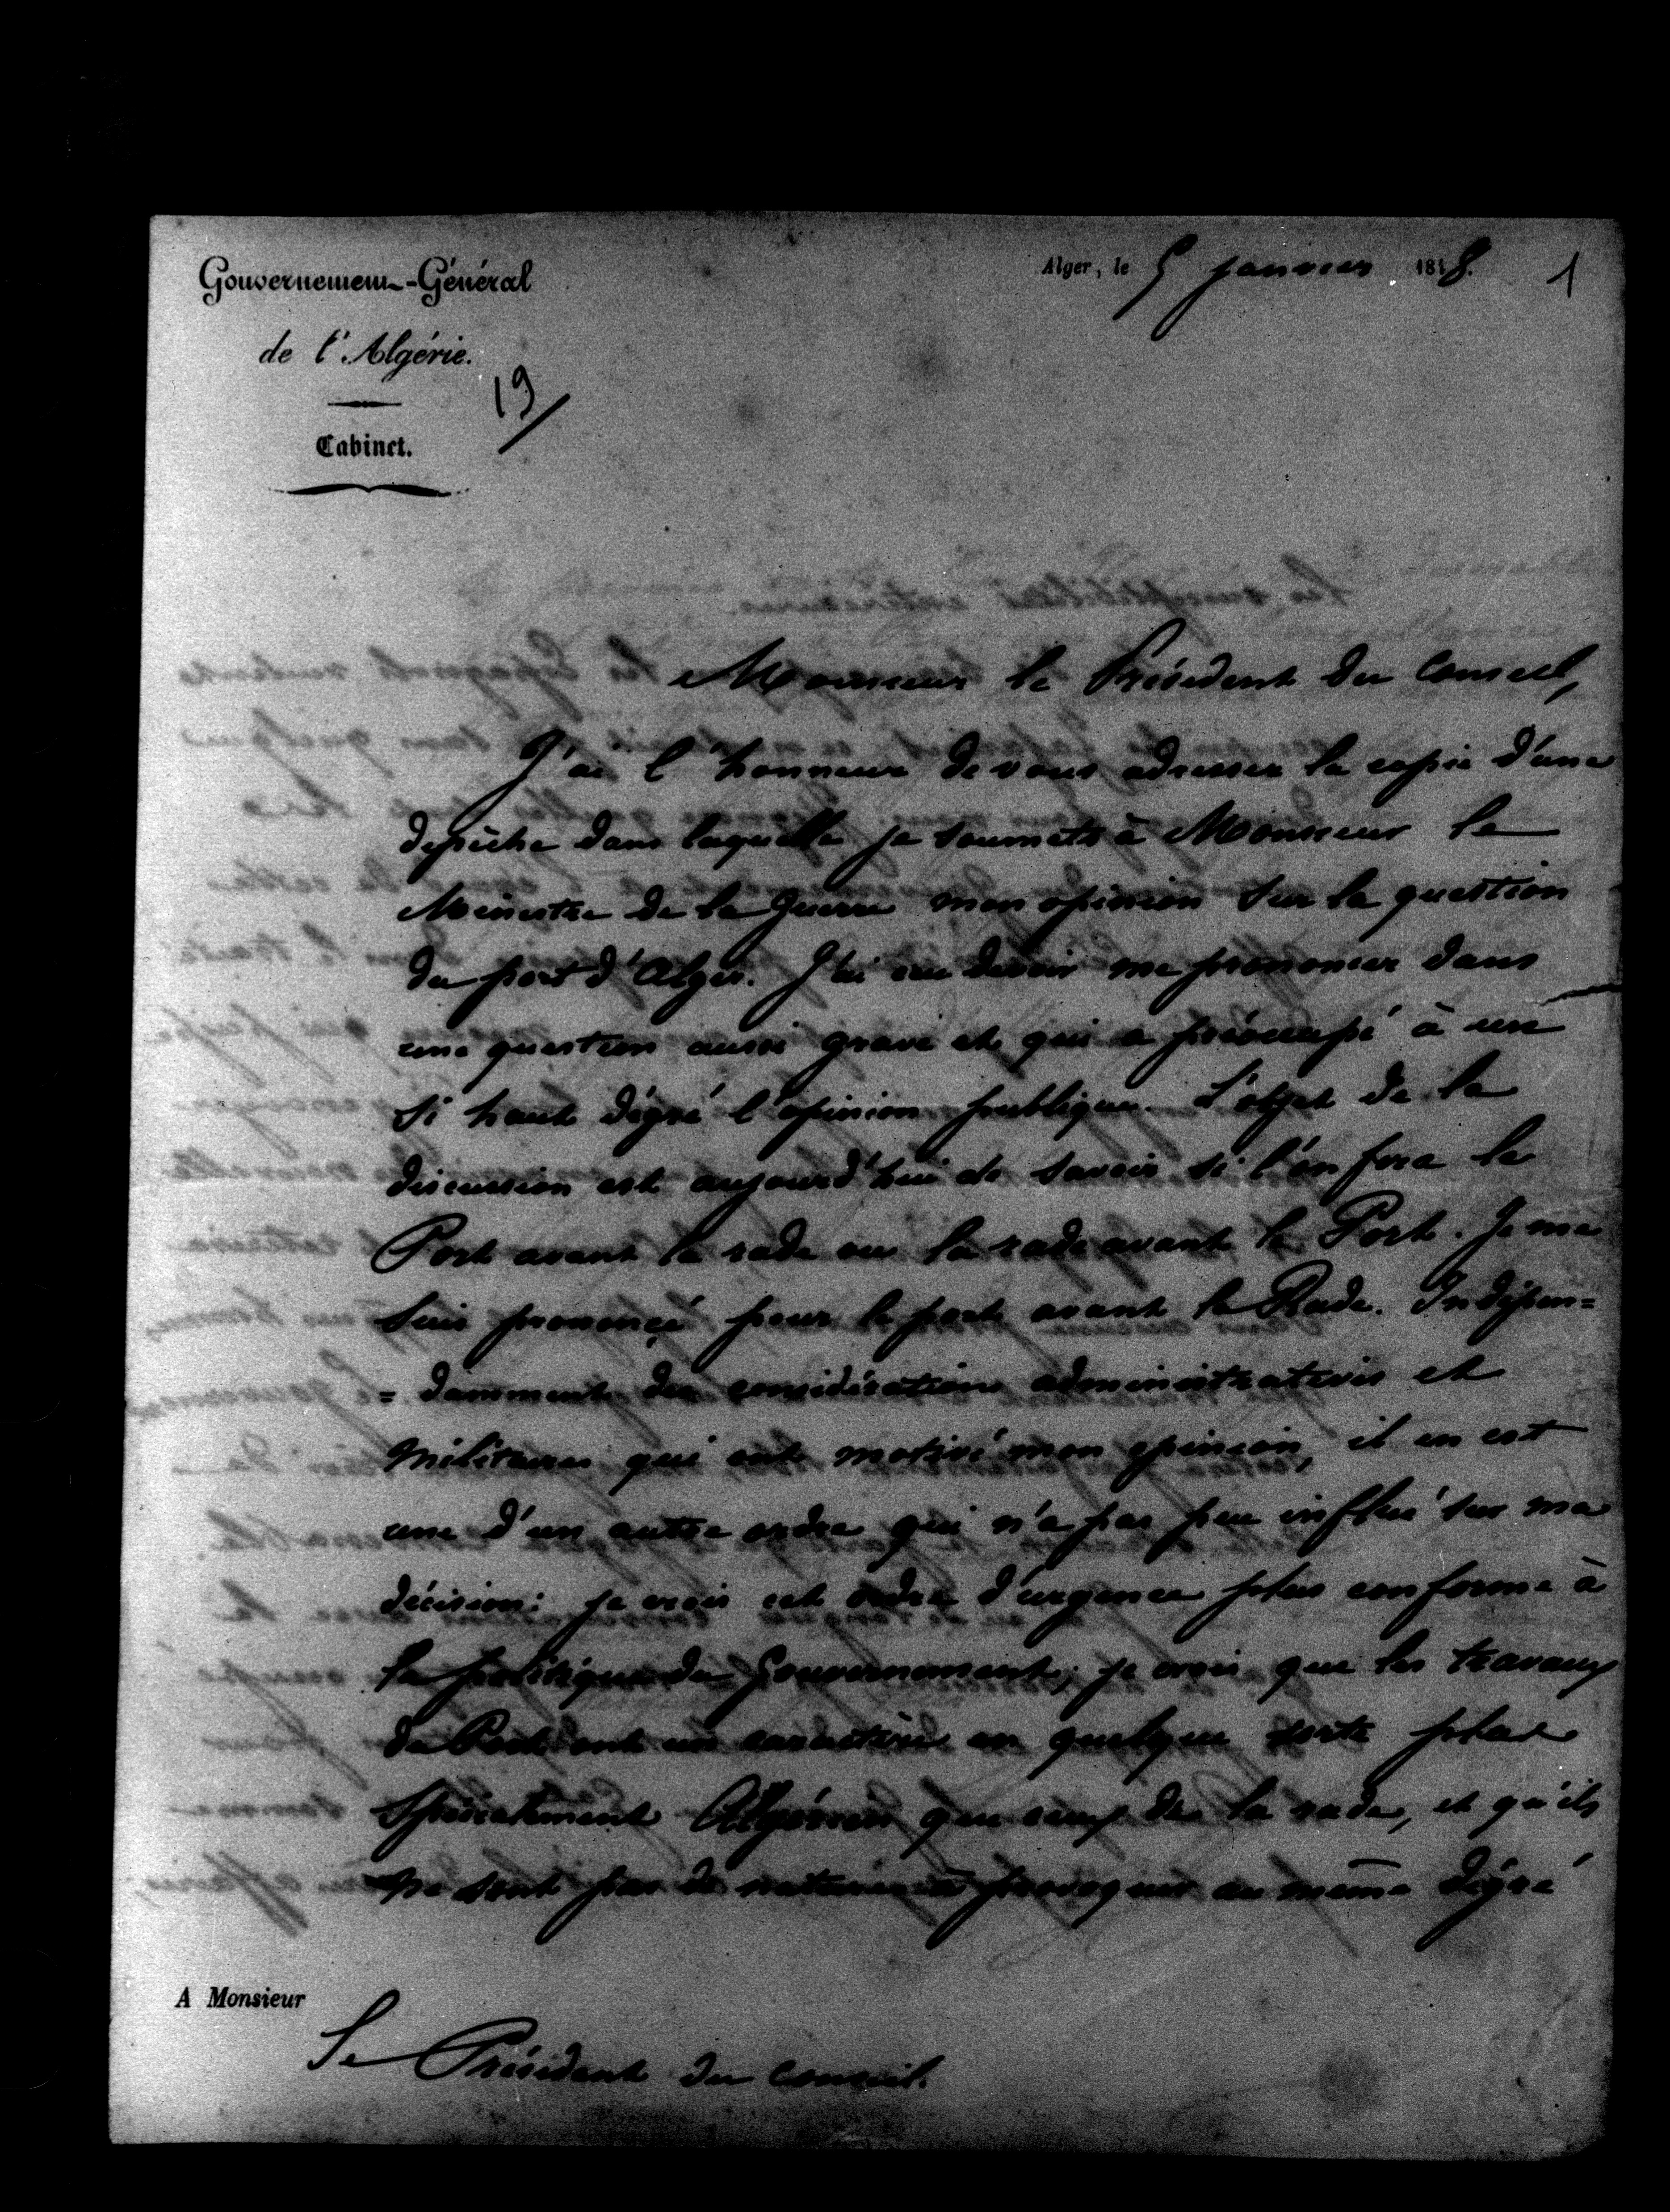 Gouvernement-Général
de l'Algérie.
Cabinet.
19
Alger, le 5 janvier 1848.
1
Monsieur le Président du Conseil,
J'ai l'honneur de vous adresser la copie d'une
dépêche dans laquelle je soumets à Monsieur le
Ministre de la Guerre mon opinion sur la question
du port d'Alger. J'ai cru devoir me prononcer dans
une question aussi grave et qui a préoccupé à un
si haut dégré l'opinion publique. L'objet de la
discussion est aujourd'hui de savoir si l'on fera le
Port avant la rade ou la rade avant le Port. Je me
suis prononcé pour le port avant la Rade. Indépen=
=damment des considérations administratives et
militaires qui ont motivé mon opinion, il en est
une d'un autre ordre qui n'a pas peu influé sur ma
décision: je crois cet ordre d'urgence plus conforme à
la politique du Gouvernement; je crois que les travaux
du Port ont un caractère en quelque sorte plus
spécialement Algérien que ceux de la rade, et qu'ils
ne sont pas de nature à provoquer au même dégré
A Monsieur
Le Président du Conseil.